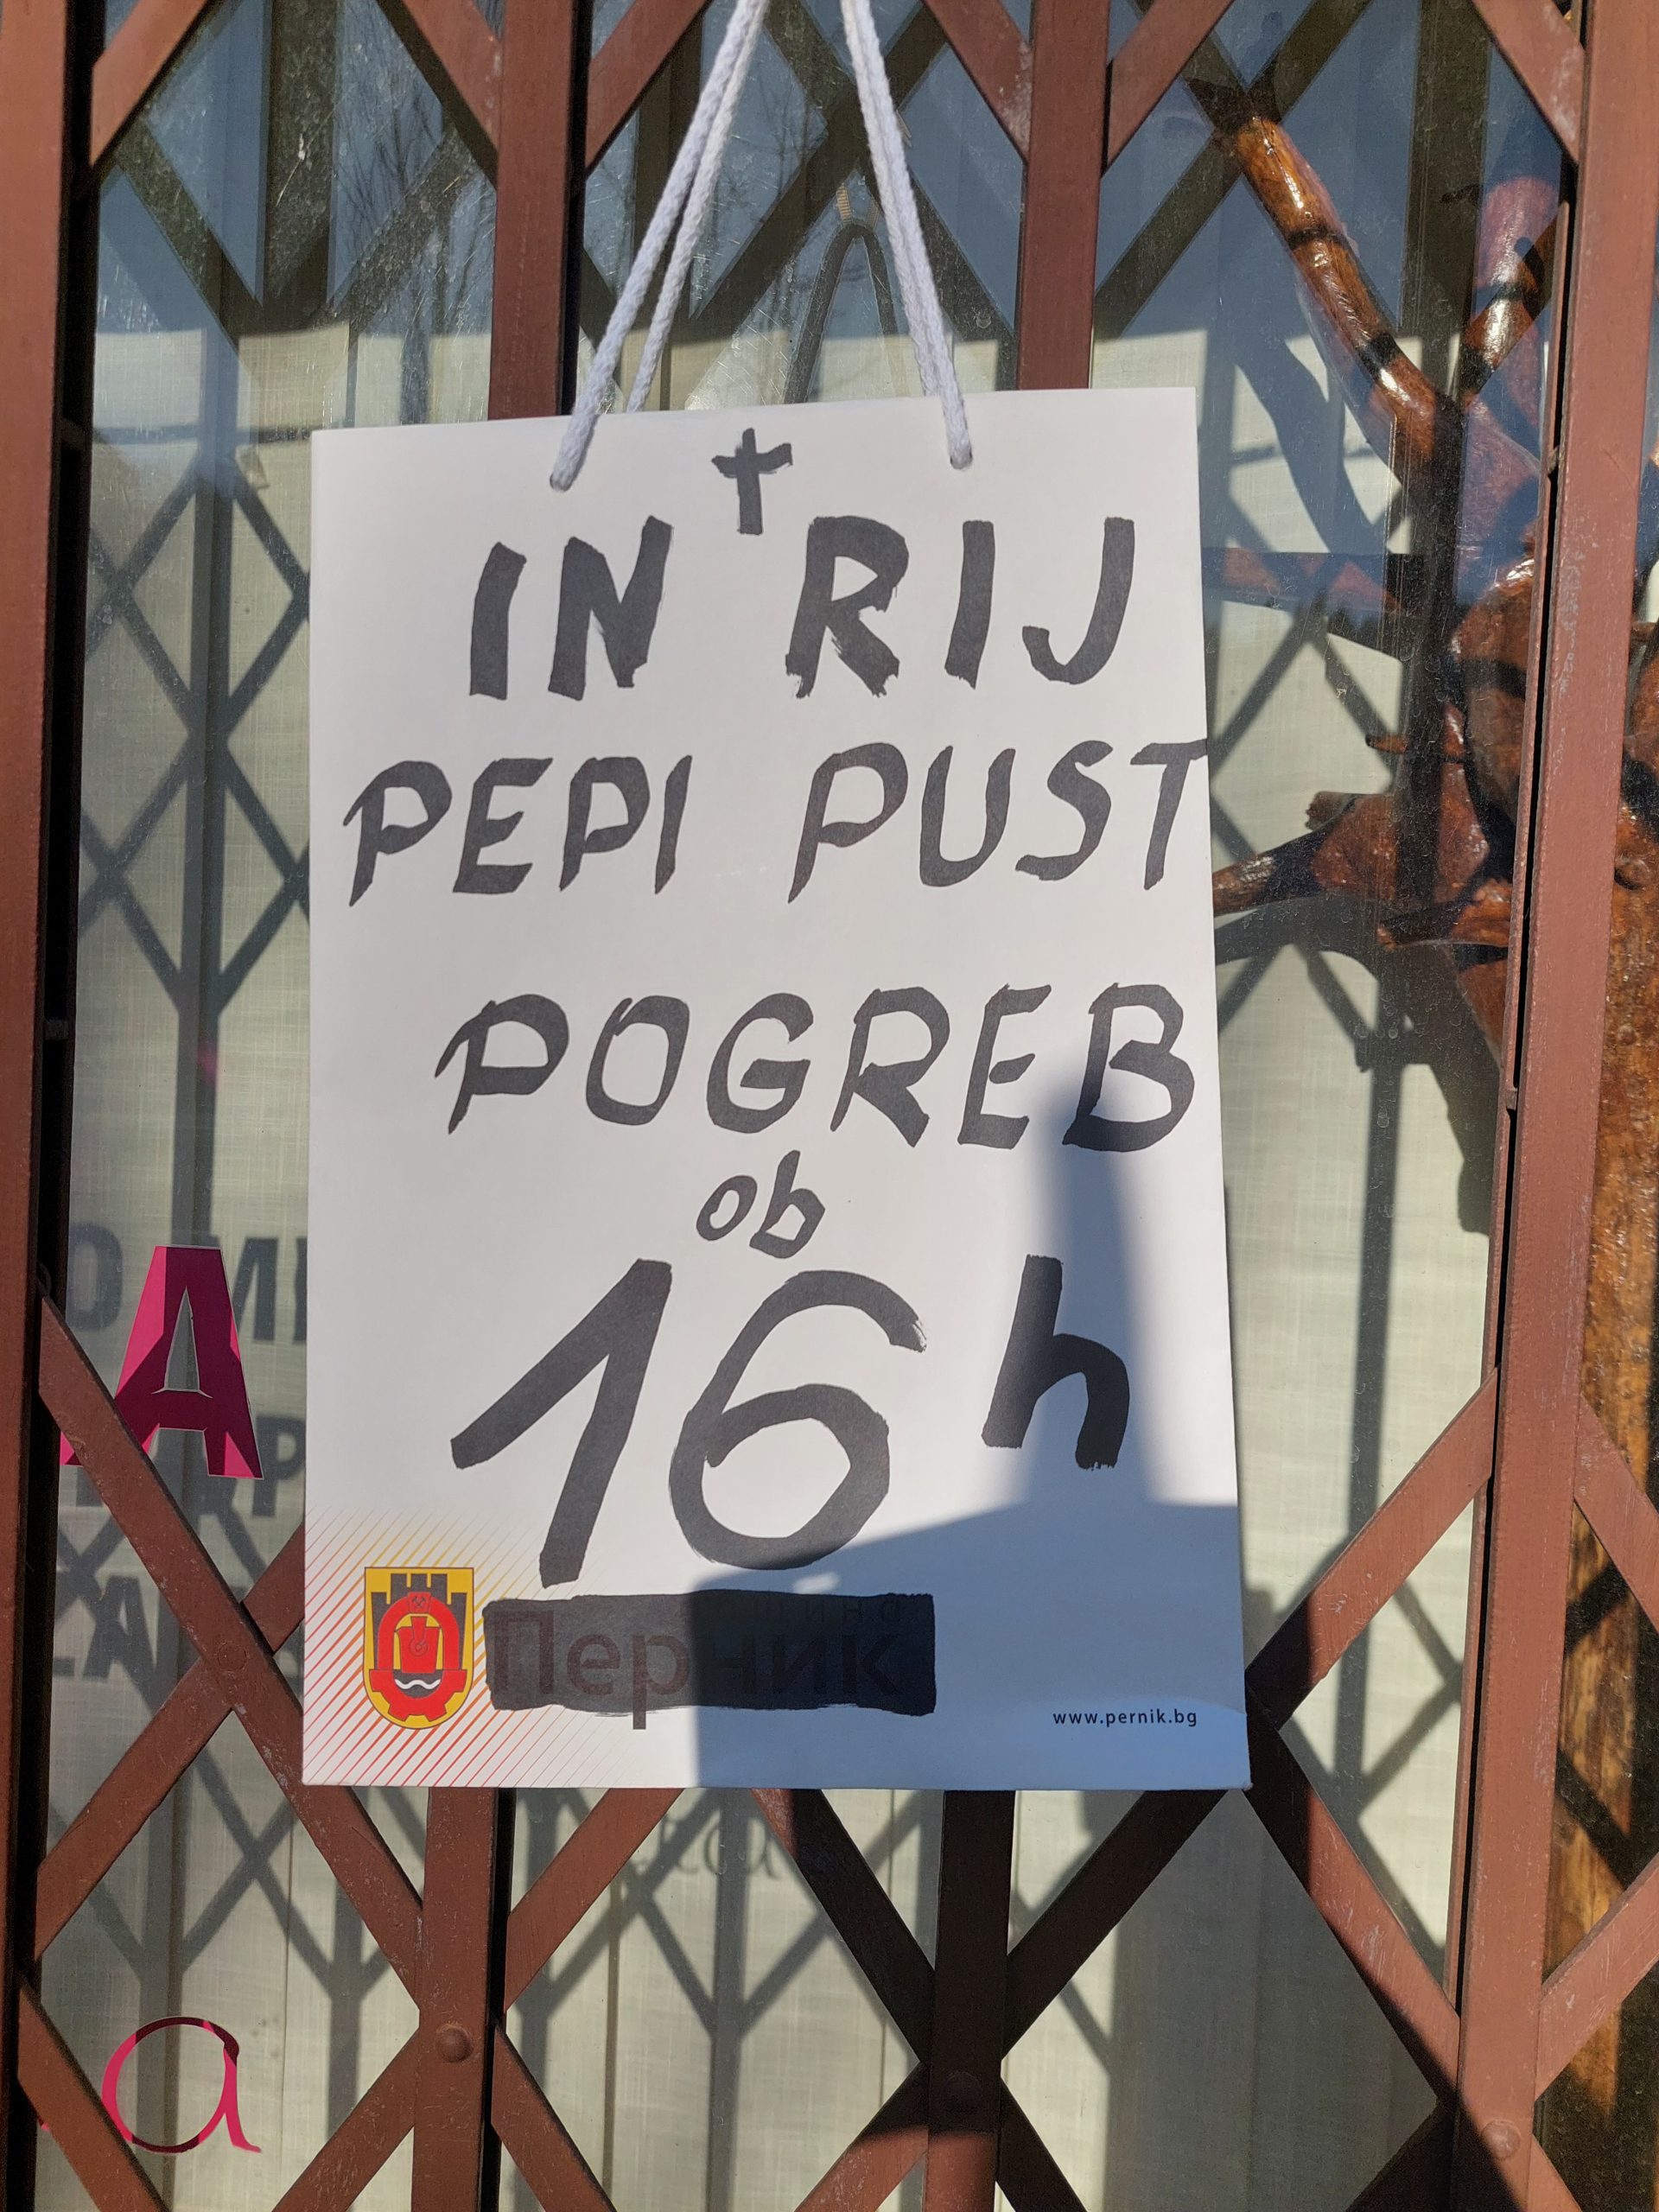 IN RIJ
PEPI PUST
POGREB
ob
16 h
Перник
www.pernik.bg
A
a